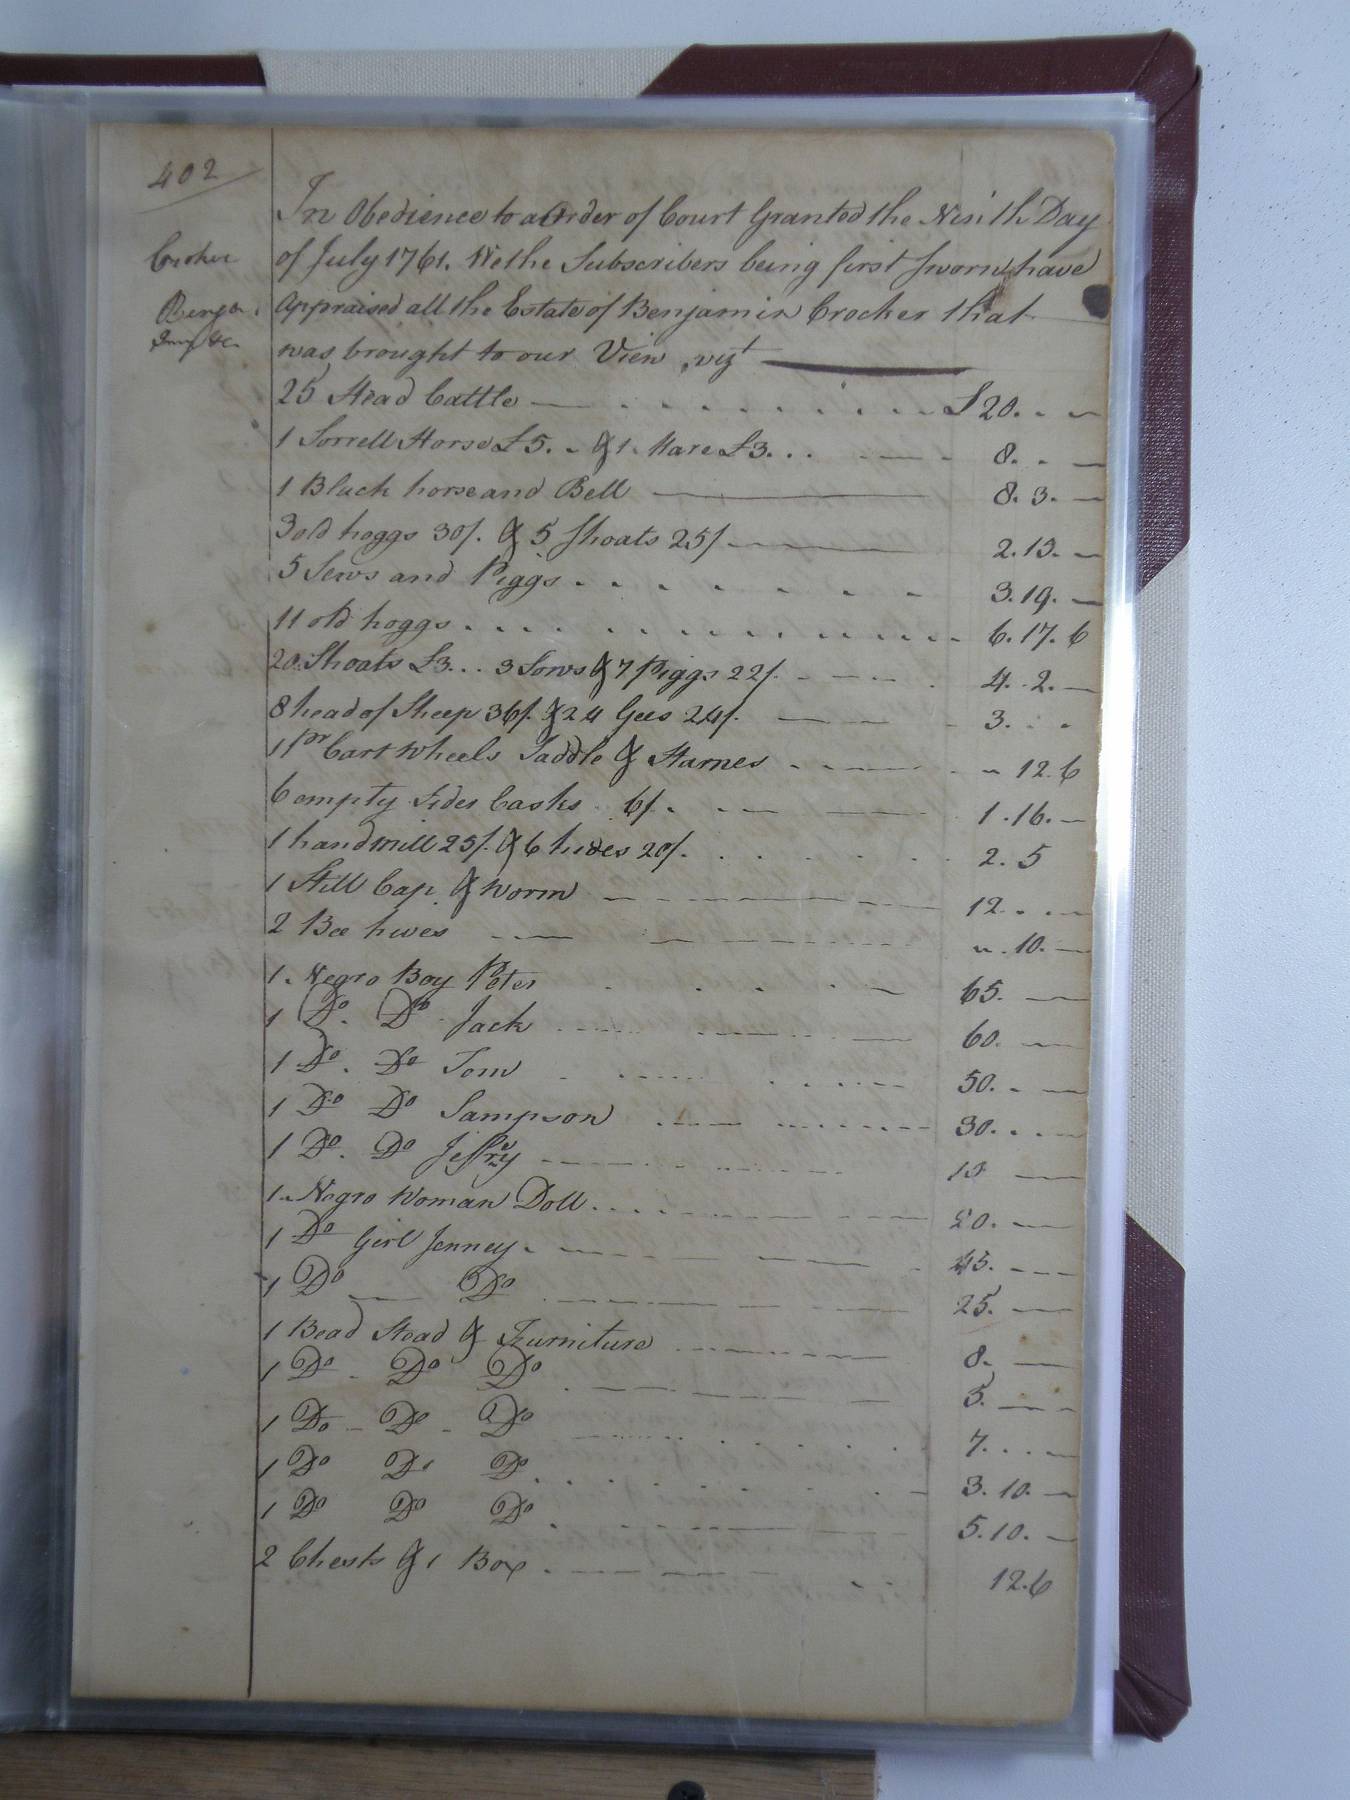 402
In Obedience to a Order of Court Granted the Ninth Day
Crocker
of July 1761. We the Subscribers being first sworn have
Benja.
Appraised all the Estate of Benjamin Crocker that
was brought to our View, vizt
25 Head Cattle £20. - -
1 Sorrell Horse £5. - & 1. Mare £3... 8. - -
1 Black horse and Bell 8. 3. -
3 old hoggs 30/. & 5 Shoats 25/ 2. 13. -
5 Sews and Piggs 3. 19. -
11 old hoggs 6. 17. 6
20. Shoats £3... 3 Sows & 7 Piggs 22/. 4. 2. -
8 head of Sheep 36/. & 24 Gees 24/. 3. . .
1 pr Cart Wheels Saddle & Harnes " 12. 6
6 empty Sider Casks 6/. 1. 16. -
1 handmill 25/. & 6 hides 20/. 2. 5
1 Still Cap & Worm 12. . . -
2 Bee hives ". 10. -
1. Negro Boy Peter 65. -
1 Do. Do. Jack 60. -
1 Do. Do Tom 50. - -
1 Do Do Sampson 30. . . -
1 Do. Do Jeffry -
1. Negro Woman Doll 20. -
1 Do Girl Jenney 45. - -
1 Do Do 25. -
1 Bead Stead & Furniture 8. -
1 Do - Do Do 5. - -
1 Do - Do - Do 7. . . . -
1 Do Do Do 3. 10. -
1 Do Do Do 5. 10. -
2 Chests & 1 Box 12. 6